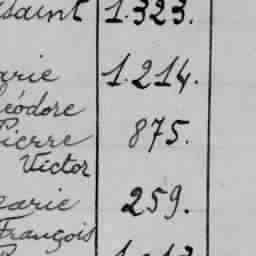 saint 1.323.
arie 1.214.
éodore
Pierre 875.
Victor
arie 259.
François